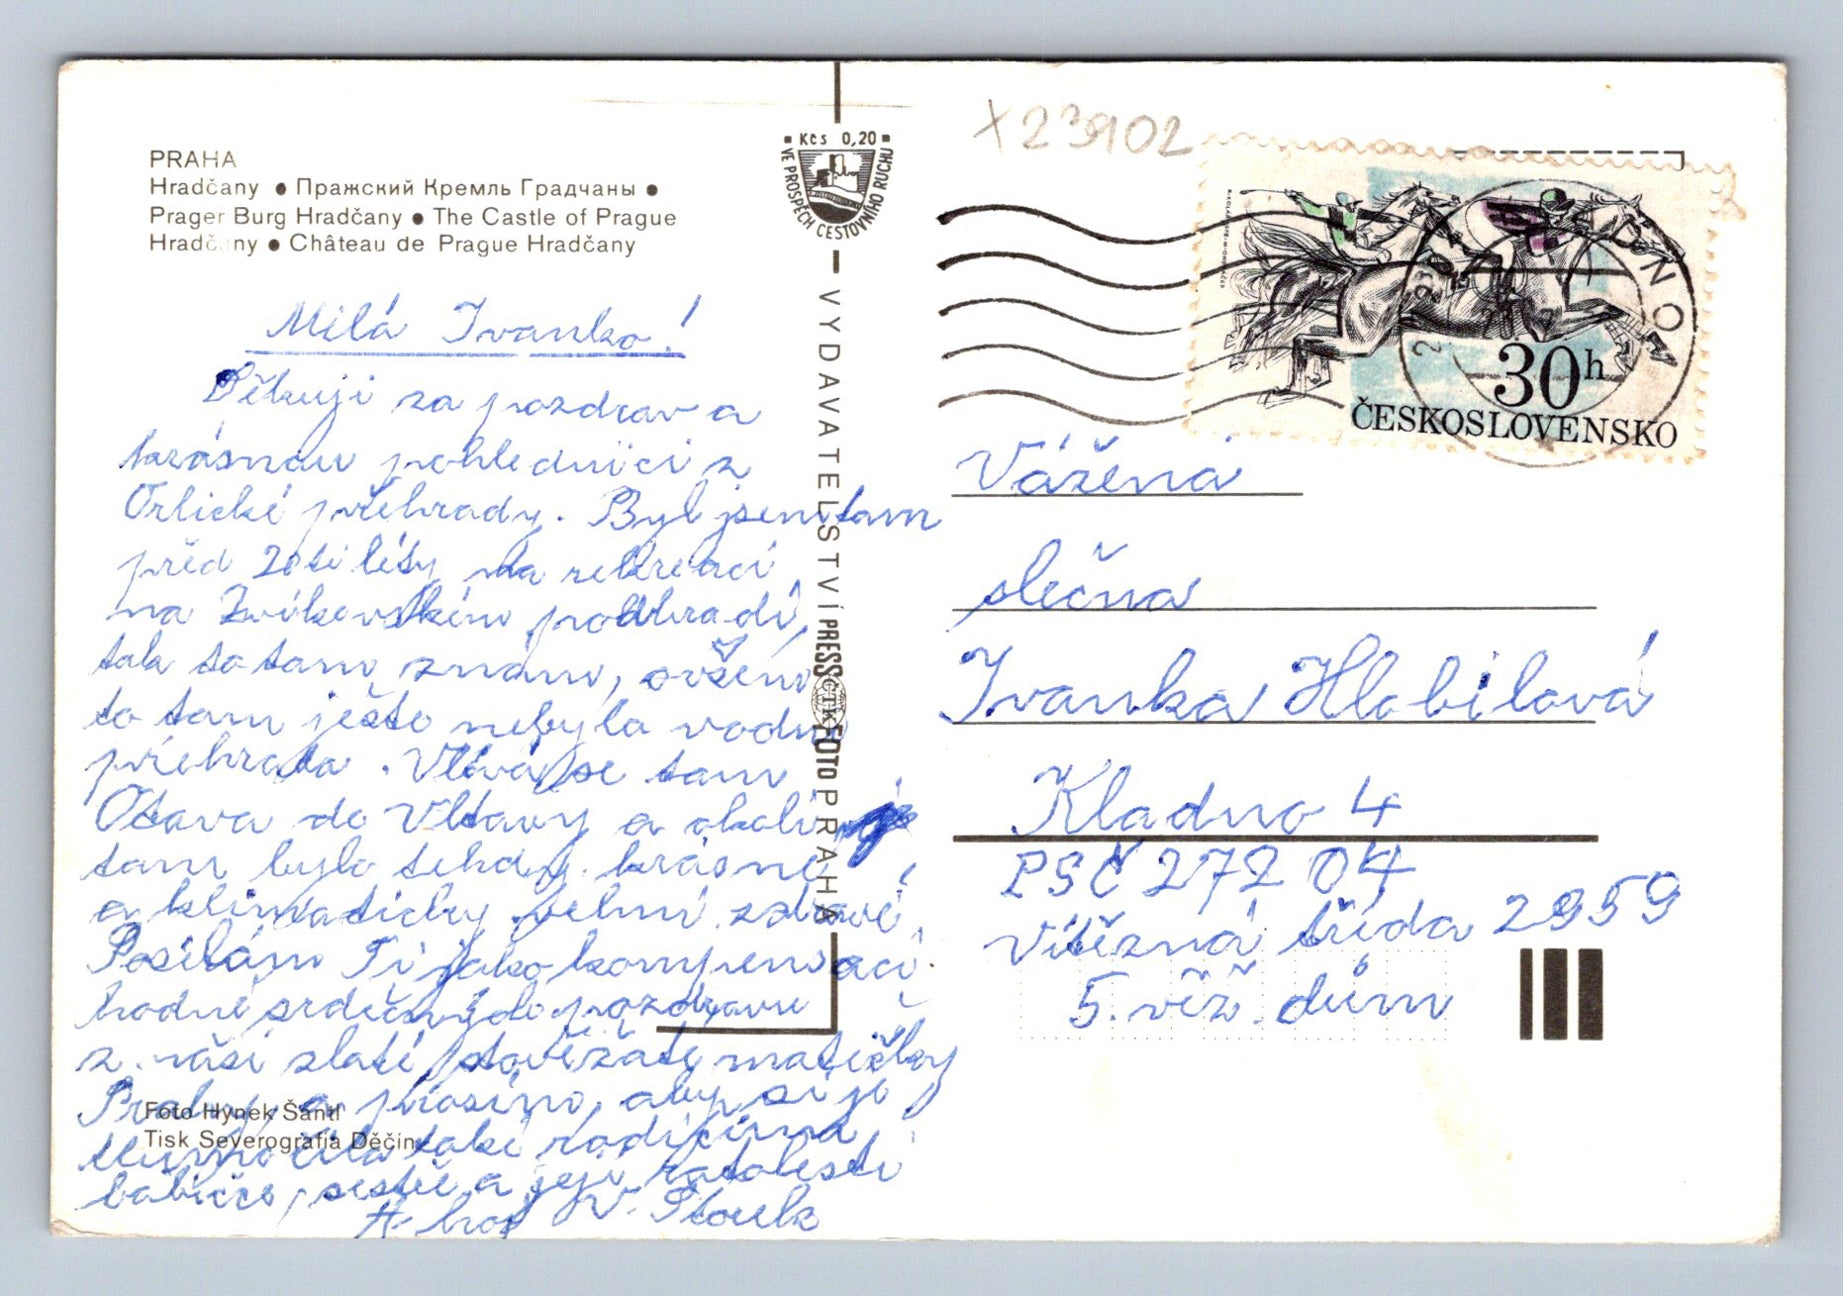 PRAHA
Hradčany ● Пражский Кремль Градчаны ●
Prager Burg Hradčany ● The Castle of Prague
Hradč ny ● Château de Prague Hradčany
Milá Ivanko!
Děkuji za pozdrav a
krásnou pohlednici z
Orlické přehrady. Byl jsem tam
před 20ti léty na rekreaci
na Zvíkovském podhradí,
tak to tam znám, ovšem
to tam ještě nebyla vodní
přehrada. Vlévá se tam
Otava do Vltavy a okolí je
tam bylo tehdy krásné,
a klimaticky velmi zdravé.
Posílám Ti jako kompensaci
hodně srdečných pozdravů
z naší zlaté stověžaté matičky
Prahy a prosím, aby si je
také rodičům a
babičce, sestře a její ratolesti
V. Plouek
Foto Hynek Šantl
Tisk Severografia Děčín
Kčs 0,20
VE PROSPĚCH CESTOVNÍHO RUCHU
VYDAVATELSTVÍ PRESSFOTO PRAHA
ČTK
X23902
30h
ČESKOSLOVENSKO
Vážená
slečna
Ivanka Hlobilová
Kladno 4
PSČ 272 04
Vítězná třída 2959
5. věž. dům